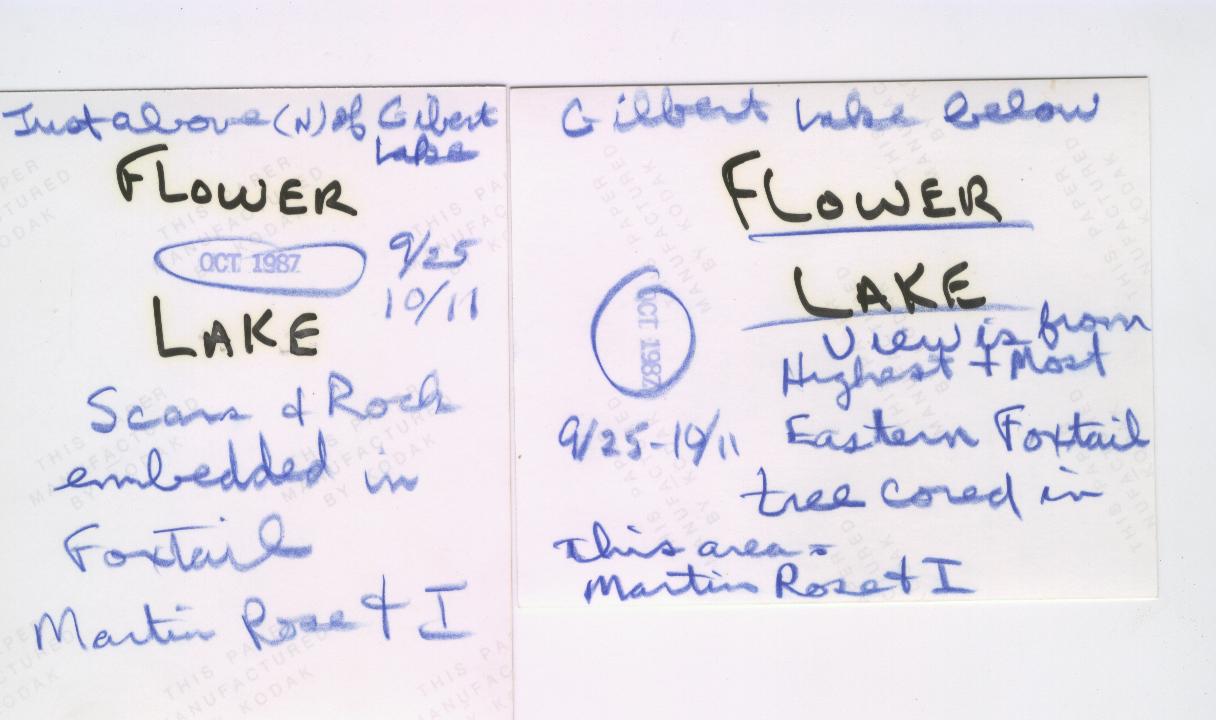 Just above (N) of Gibert
Lake
FLOWER
OCT 1987
9/25
10/11
LAKE
Scars & Rock
embedded in
Foxtail
Martin Rose & I
THIS PAPER
MANUFACTURED
BY KODAK
Gilbert Lake below
FLOWER
LAKE
OCT 1987
View is from
Highest & Most
9/25-10/11 Eastern Foxtail
tree cored in
this area -
Martin Rose & I
THIS PAPER
MANUFACTURED
BY KODAK